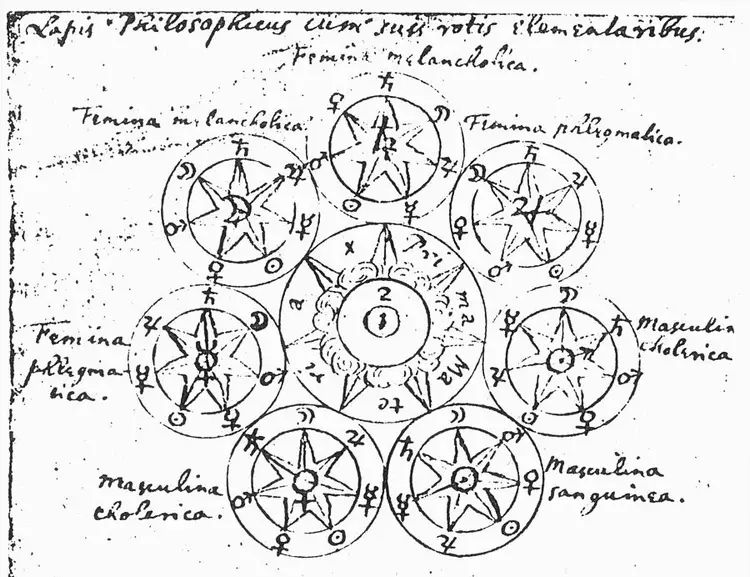 Lapis Philosophicus cum suis rotis elementaribus.
Femina melancholica.
Femina melancholica.
Femina phlegmatica.
x Pri
a ma
2
1
Ma
te
Femina
phlegma
tica.
Masculin
cholerica
Masculina
cholerica.
Masculina
sanguinea.